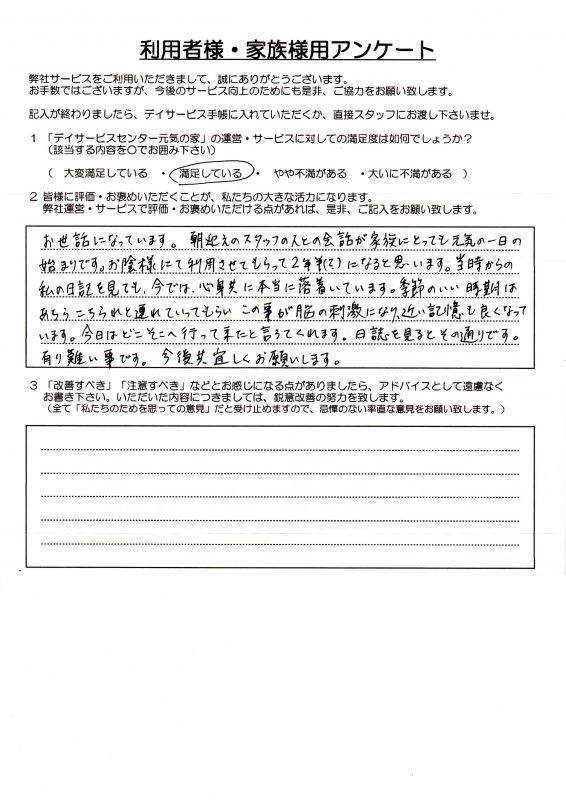 利用者様・家族様用アンケート
弊社サービスをご利用いただきまして、誠にありがとうございます。
お手数ではございますが、今後のサービス向上のためにも是非、ご協力をお願い致します。
記入が終わりましたら、デイサービス手帳に入れていただくか、直接スタッフにお渡し下さいませ。
1 「デイサービスセンター元気の家」の運営・サービスに対しての満足度は如何でしょうか？
（該当する内容を〇でお囲み下さい）
（ 大変満足している ・ 満足している ・ やや不満がある ・大いに不満がある ）
2 皆様に評価・お褒めいただくことが、私たちの大きな活力になります。
弊社運営・サービスで評価・お褒めいただける点があれば、是非、ご記入をお願い致します。
お世話になっています。朝迎えのスタッフの人との会話が家族にとっても元気の一日の
始まりです。お陰様にて利用させてもらって2年半 になると思います。当時からの
私の日記を見ても、今では、心身共に本当に落着いています。季節のいい時期は
あちらこちられと連れていってもらい この事が脳の刺激になり、近い記憶も良くなって
います。今日はどこそこへ行って来たと言うてくれます。日誌を見るとその通りです。
有り難い事です。今後共宜しくお願いします。
3 「改善すべき」「注意すべき」などとお感じになる点がありましたら、アドバイスとして遠慮なく
お書き下さい。いただいた内容につきましては、鋭意改善の努力を致します。
（全て「私たちのためを思っての意見」だと受け止めますので、忌憚のない率直な意見をお願い致します。）